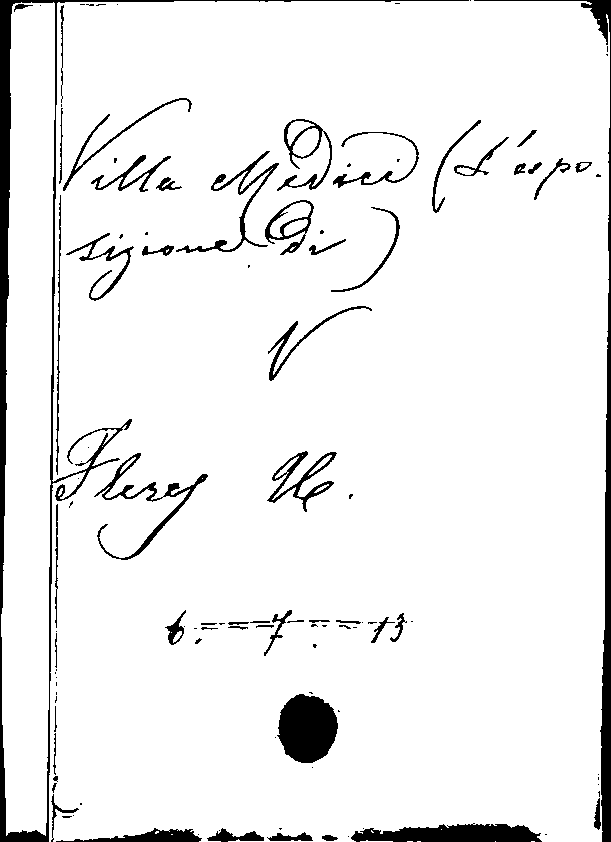 Villa Medici (L'espo-
sizione di)
V
Fleres U.
6. 7. 13